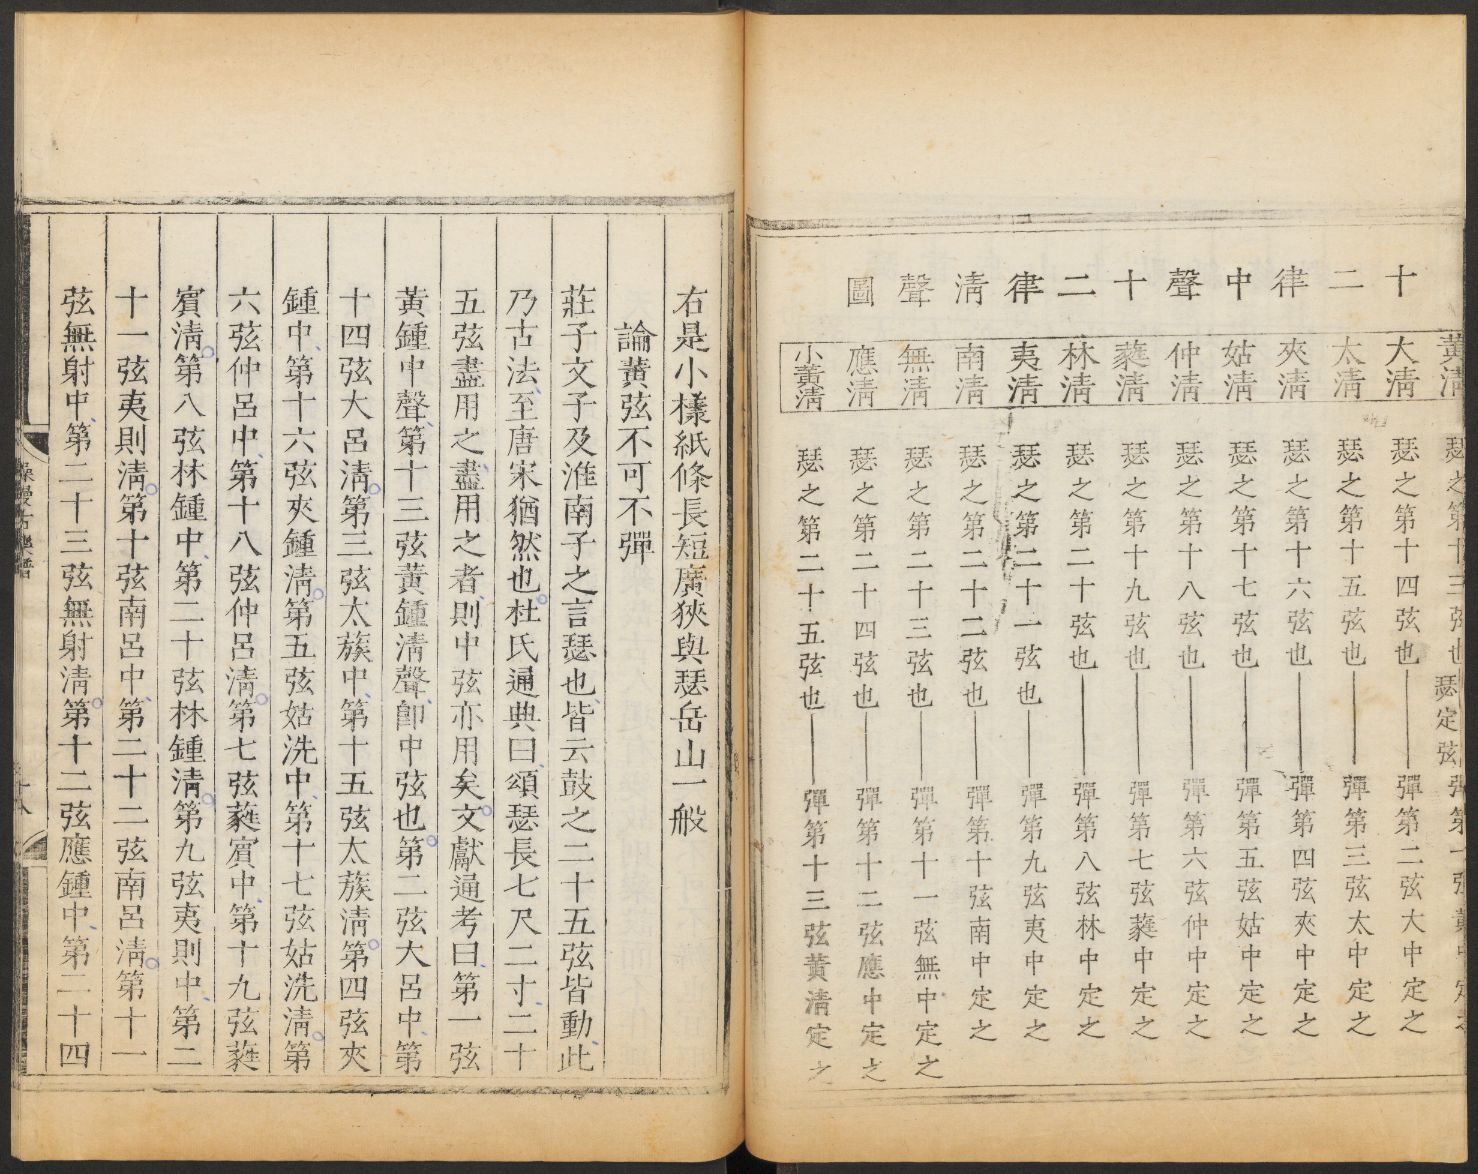 十二律中聲十二律清聲圖
黃清 瑟之第十三弦也 瑟定弦 彈第一弦黃中定之
大清 瑟之第十四弦也 彈第二弦大中定之
太清 瑟之第十五弦也 彈第三弦太中定之
夾清 瑟之第十六弦也 彈第四弦夾中定之
姑清 瑟之第十七弦也 彈第五弦姑中定之
仲清 瑟之第十八弦也 彈第六弦仲中定之
蕤清 瑟之第十九弦也 彈第七弦蕤中定之
林清 瑟之第二十弦也 彈第八弦林中定之
夷清 瑟之第二十一弦也 彈第九弦夷中定之
南清 瑟之第二十二弦也 彈第十弦南中定之
無清 瑟之第二十三弦也 彈第十一弦無中定之
應清 瑟之第二十四弦也 彈第十二弦應中定之
小黃清 瑟之第二十五弦也 彈第十三弦黃清定之
右是小樣紙條長短廣狹與瑟岳山一般
論黃弦不可不彈
莊子文子及淮南子之言瑟也皆云鼓之二十五弦皆動此
乃古法至唐宋猶然也杜氏通典曰頌瑟長七尺二寸二十
五弦盡用之盡用之者則中弦亦用矣文獻通考曰第一弦
黃鍾中聲第十三弦黃鍾清聲卽中弦也第二弦大呂中第
十四弦大呂清第三弦太蔟中第十五弦太蔟清第四弦夾
鍾中第十六弦夾鍾清第五弦姑洗中第十七弦姑洗清第
六弦仲呂中第十八弦仲呂清第七弦蕤賓中第十九弦蕤
賓清第八弦林鍾中第二十弦林鍾清第九弦夷則中第二
十一弦夷則清第十弦南呂中第二十二弦南呂清第十一
弦無射中第二十三弦無射清第十二弦應鍾中第二十四